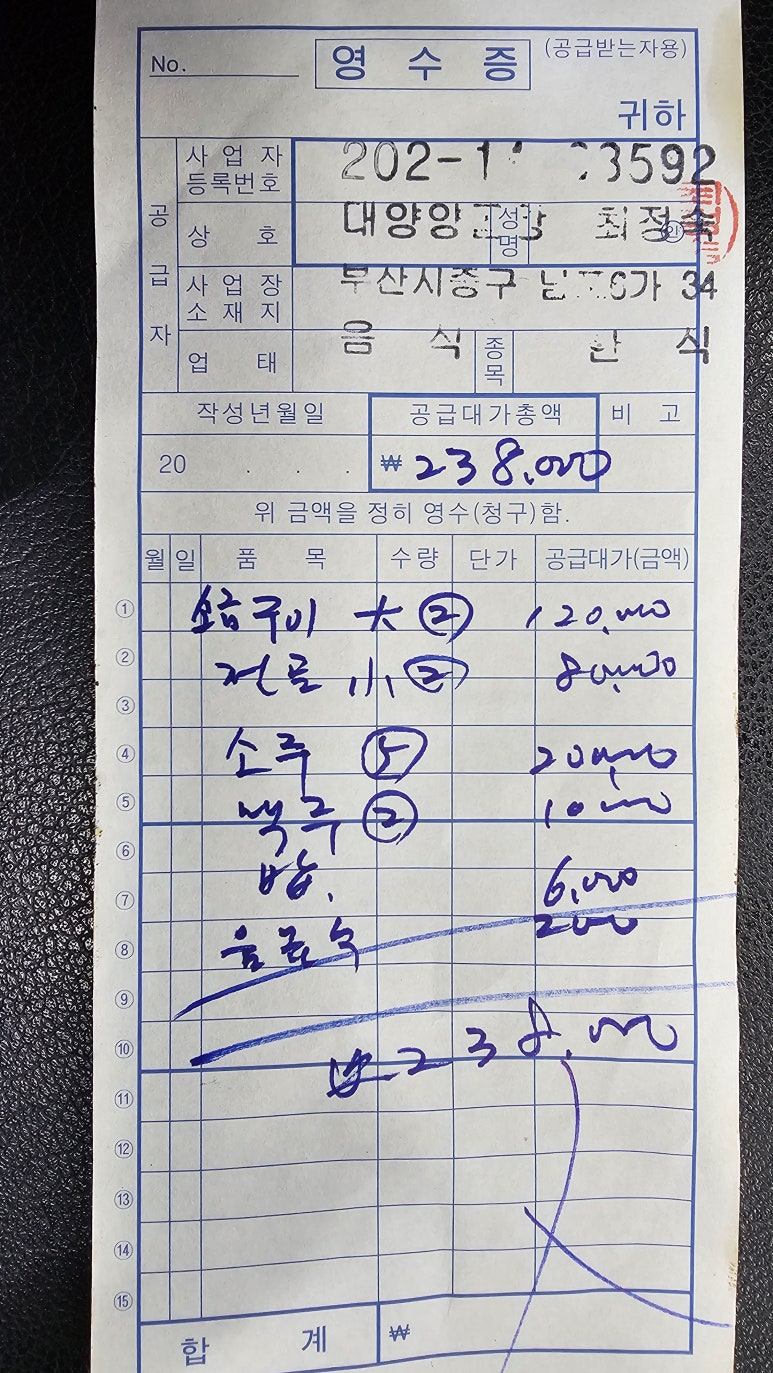 No. 영 수 증 (공급받는자용)
귀하
공급자
사업자등록번호 202-1 3592
상 호 대양 성명 최정숙 인
사업장소재지 부산시중구 6가 34
업 태 음 식 종목 한 식
작성년월일 공급대가총액 비 고
20 . . . ₩ 238,000
위 금액을 정히 영수(청구)함.
월 일 품 목 수량 단가 공급대가(금액)
① 소금구이 大 ② 120,000
② 전골 小 ② 80,000
③
④ 소주 ⑤ 20,000
⑤ 맥주 ② 10,000
⑥ 밥.
⑦ 6,000
⑧ 음료수 2000
⑨
⑩ ₩ 238,000
⑪
⑫
⑬
⑭
⑮
합 계 ₩